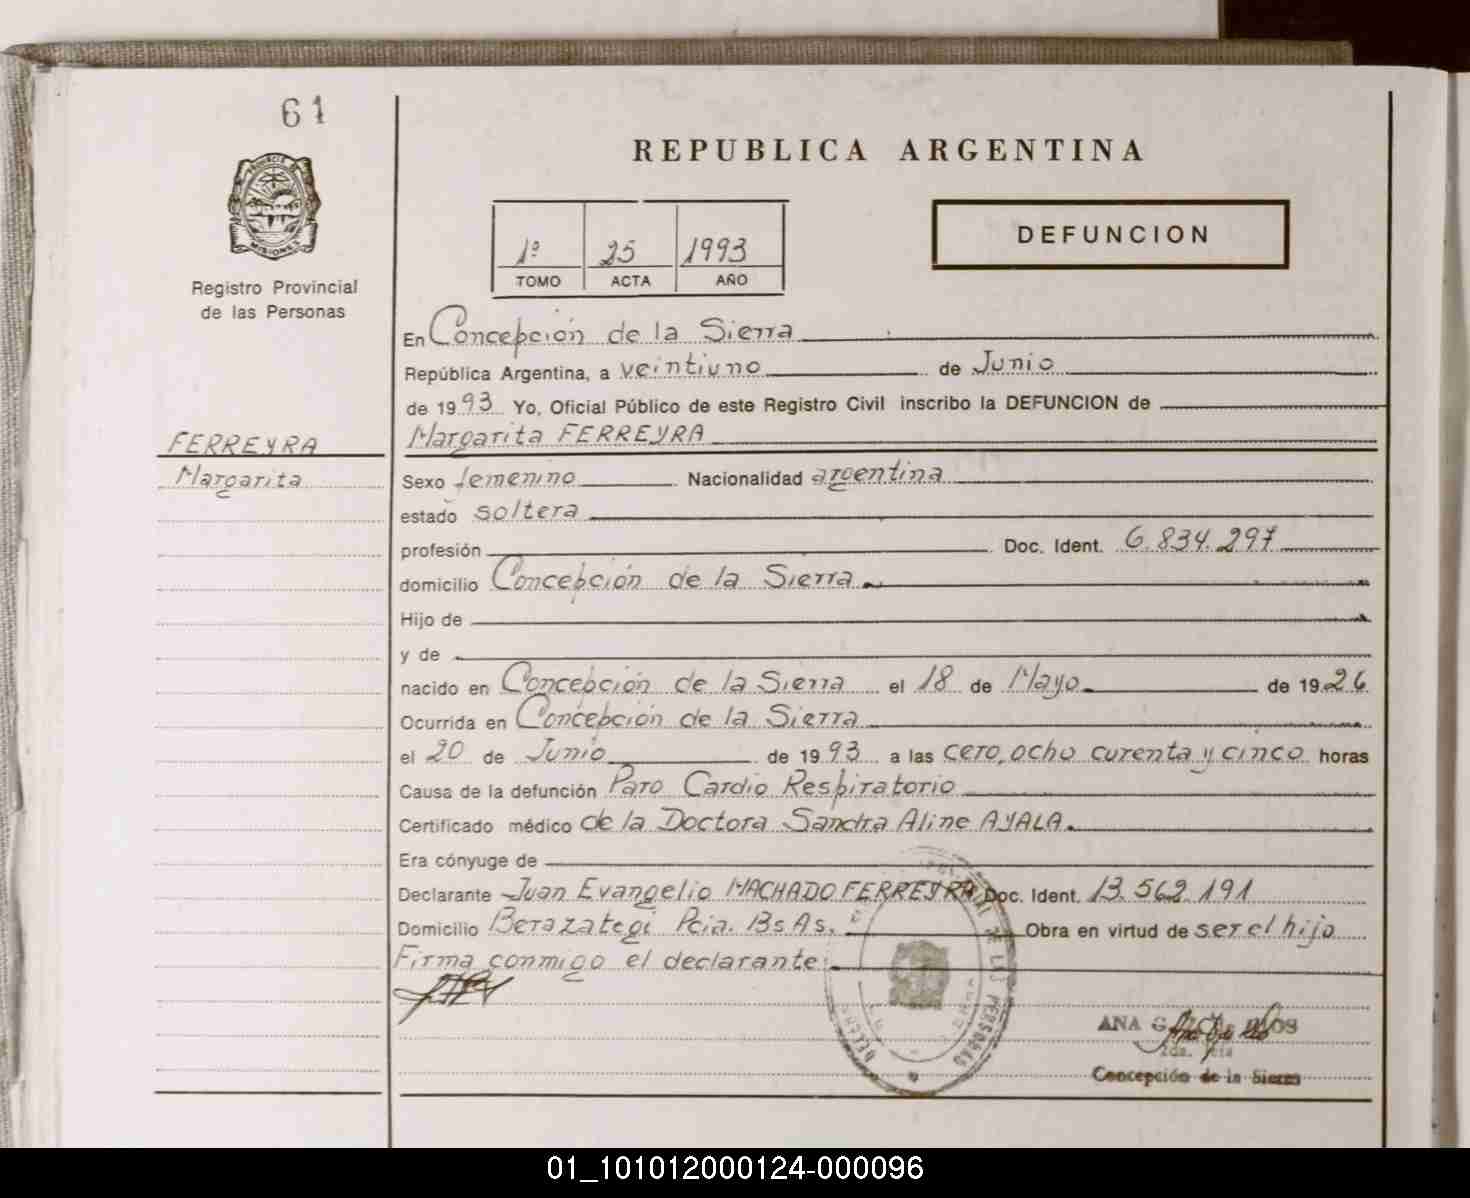 61
REPUBLICA ARGENTINA
MISIONES
Registro Provincial
de las Personas
1º 25 1993
TOMO ACTA AÑO
DEFUNCION
En Concepción de la Sierra
República Argentina, a veintiuno de Junio
de 1993 Yo, Oficial Público de este Registro Civil inscribo la DEFUNCION de
FERREYRA
Margarita
Margarita FERREYRA
Sexo femenino Nacionalidad argentina
estado soltera
profesión Doc. Ident. 6.834.297
domicilio Concepción de la Sierra
Hijo de
y de
nacido en Concepción de la Sierra el 18 de Mayo de 1926
Ocurrida en Concepción de la Sierra
el 20 de Junio de 1993 a las cero, ocho curenta y cinco horas
Causa de la defunción Paro Cardio Respiratorio
Certificado médico de la Doctora Sandra Aline AYALA.
Era cónyuge de
Declarante Juan Evangelio MACHADO FERREYRA Doc. Ident. 13.562.191
Domicilio Berazategi Pcia. Bs As. Obra en virtud de ser el hijo
Firma conmigo el declarante
DE LAS PERSONAS
ANA
Concepción de la Sierra
01_101012000124-000096